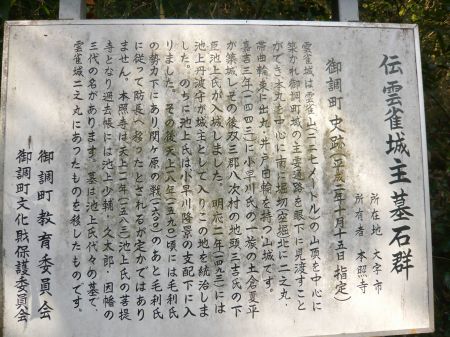 伝雲雀城主墓石群
所在地 大字市
所有者 本照寺
御調町史跡(平成二年十月十五日指定)
雲雀城は雲雀山(二二七メートル)の山頂を中心に
築かれ御調町域の主要通路を眼下に見渡すこと
ができ本丸を中心に南に堀切(空堀北に二之丸・
帯曲輪東に出丸・井戸曲輪を持つ山城です。
嘉吉三年(一四四三)に小早川氏の一族の土倉夏平
が築城し、その後双三郡八次村の地頭三吉氏の下
臣池上氏が入城しました。明応二年(一四九三)には
池上丹波守が城主として入りこの地を統治しま
した。のちに池上氏は小早川隆景の支配下に入
りました。その後天正十八年(一五九〇)頃には毛利氏
の勢力下にあり関ヶ原の戦(一六〇〇)のあと毛利氏
に従って防長へ移ったとされるが定かではあり
ません。本照寺は天正十二年(一五八三)池上氏の菩提
寺となり過去帳には池上少輔・久太郎・因幡の
三代の名があります。墓は池上氏代々の墓で、
雲雀城二之丸にあったものを移したものです。
御調町教育委員会
御調町文化財保護委員会